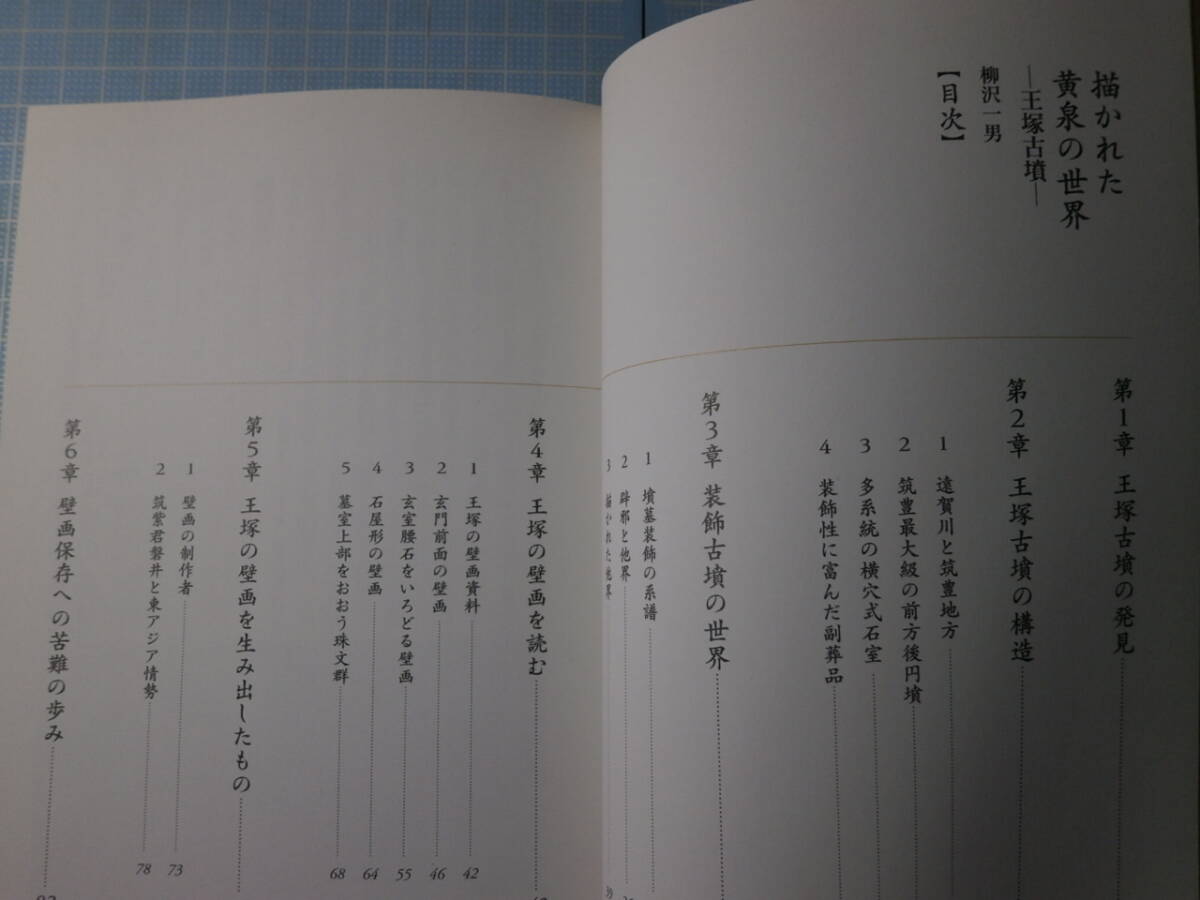 描かれた
黄泉の世界
―王塚古墳―
柳沢一男
【目次】
第1章 王塚古墳の発見
第2章 王塚古墳の構造
1 遠賀川と筑豊地方
2 筑豊最大級の前方後円墳
3 多系統の横穴式石室
4 装飾性に富んだ副葬品
第3章 装飾古墳の世界
1 墳墓装飾の系譜
2 辟邪と他界
3 描かれた他界
第4章 王塚の壁画を読む
1 王塚の壁画資料 42
2 玄門前面の壁画 46
3 玄室腰石をいろどる壁画 55
4 石屋形の壁画 64
5 墓室上部をおおう珠文群 68
第5章 王塚の壁画を生み出したもの
1 壁画の制作者 73
2 筑紫君磐井と東アジア情勢 78
第6章 壁画保存への苦難の歩み